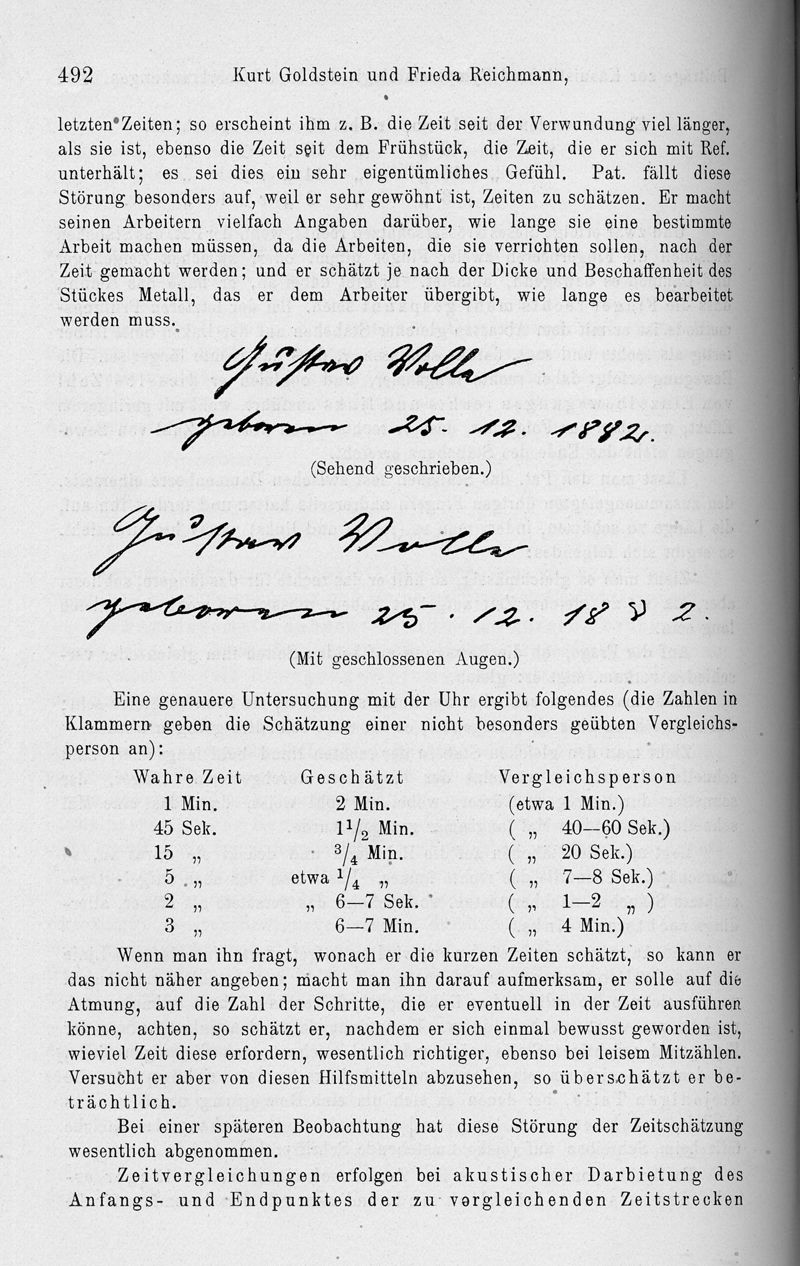 492 Kurt Goldstein und Frieda Reichmann,
letzten Zeiten; so erscheint ihm z. B. die Zeit seit der Verwundung viel länger,
als sie ist, ebenso die Zeit seit dem Frühstück, die Zeit, die er sich mit Ref.
unterhält; es sei dies ein sehr eigentümliches Gefühl. Pat. fällt diese
Störung besonders auf, weil er sehr gewöhnt ist, Zeiten zu schätzen. Er macht
seinen Arbeitern vielfach Angaben darüber, wie lange sie eine bestimmte
Arbeit machen müssen, da die Arbeiten, die sie verrichten sollen, nach der
Zeit gemacht werden; und er schätzt je nach der Dicke und Beschaffenheit des
Stückes Metall, das er dem Arbeiter übergibt, wie lange es bearbeitet
werden muss.
Gustav Volle
geboren 25. 12. 1882.
(Sehend geschrieben.)
Gustav Volle
geboren 25. 12. 18 2.
(Mit geschlossenen Augen.)
Eine genauere Untersuchung mit der Uhr ergibt folgendes (die Zahlen in
Klammern geben die Schätzung einer nicht besonders geübten Vergleichs-
person an):
Wahre Zeit Geschätzt Vergleichsperson
1 Min. 2 Min. (etwa 1 Min.)
45 Sek. 1 1/2 Min. ( „ 40—60 Sek.)
15 „ 3/4 Min. ( „ 20 Sek.)
5 „ etwa 1/4 „ ( „ 7—8 Sek.)
2 „ „ 6—7 Sek. ( „ 1—2 „ )
3 „ 6—7 Min. ( „ 4 Min.)
Wenn man ihn fragt, wonach er die kurzen Zeiten schätzt, so kann er
das nicht näher angeben; macht man ihn darauf aufmerksam, er solle auf die
Atmung, auf die Zahl der Schritte, die er eventuell in der Zeit ausführen
könne, achten, so schätzt er, nachdem er sich einmal bewusst geworden ist,
wieviel Zeit diese erfordern, wesentlich richtiger, ebenso bei leisem Mitzählen.
Versucht er aber von diesen Hilfsmitteln abzusehen, so überschätzt er be-
trächtlich.
Bei einer späteren Beobachtung hat diese Störung der Zeitschätzung
wesentlich abgenommen.
Zeitvergleichungen erfolgen bei akustischer Darbietung des
Anfangs- und Endpunktes der zu vergleichenden Zeitstrecken